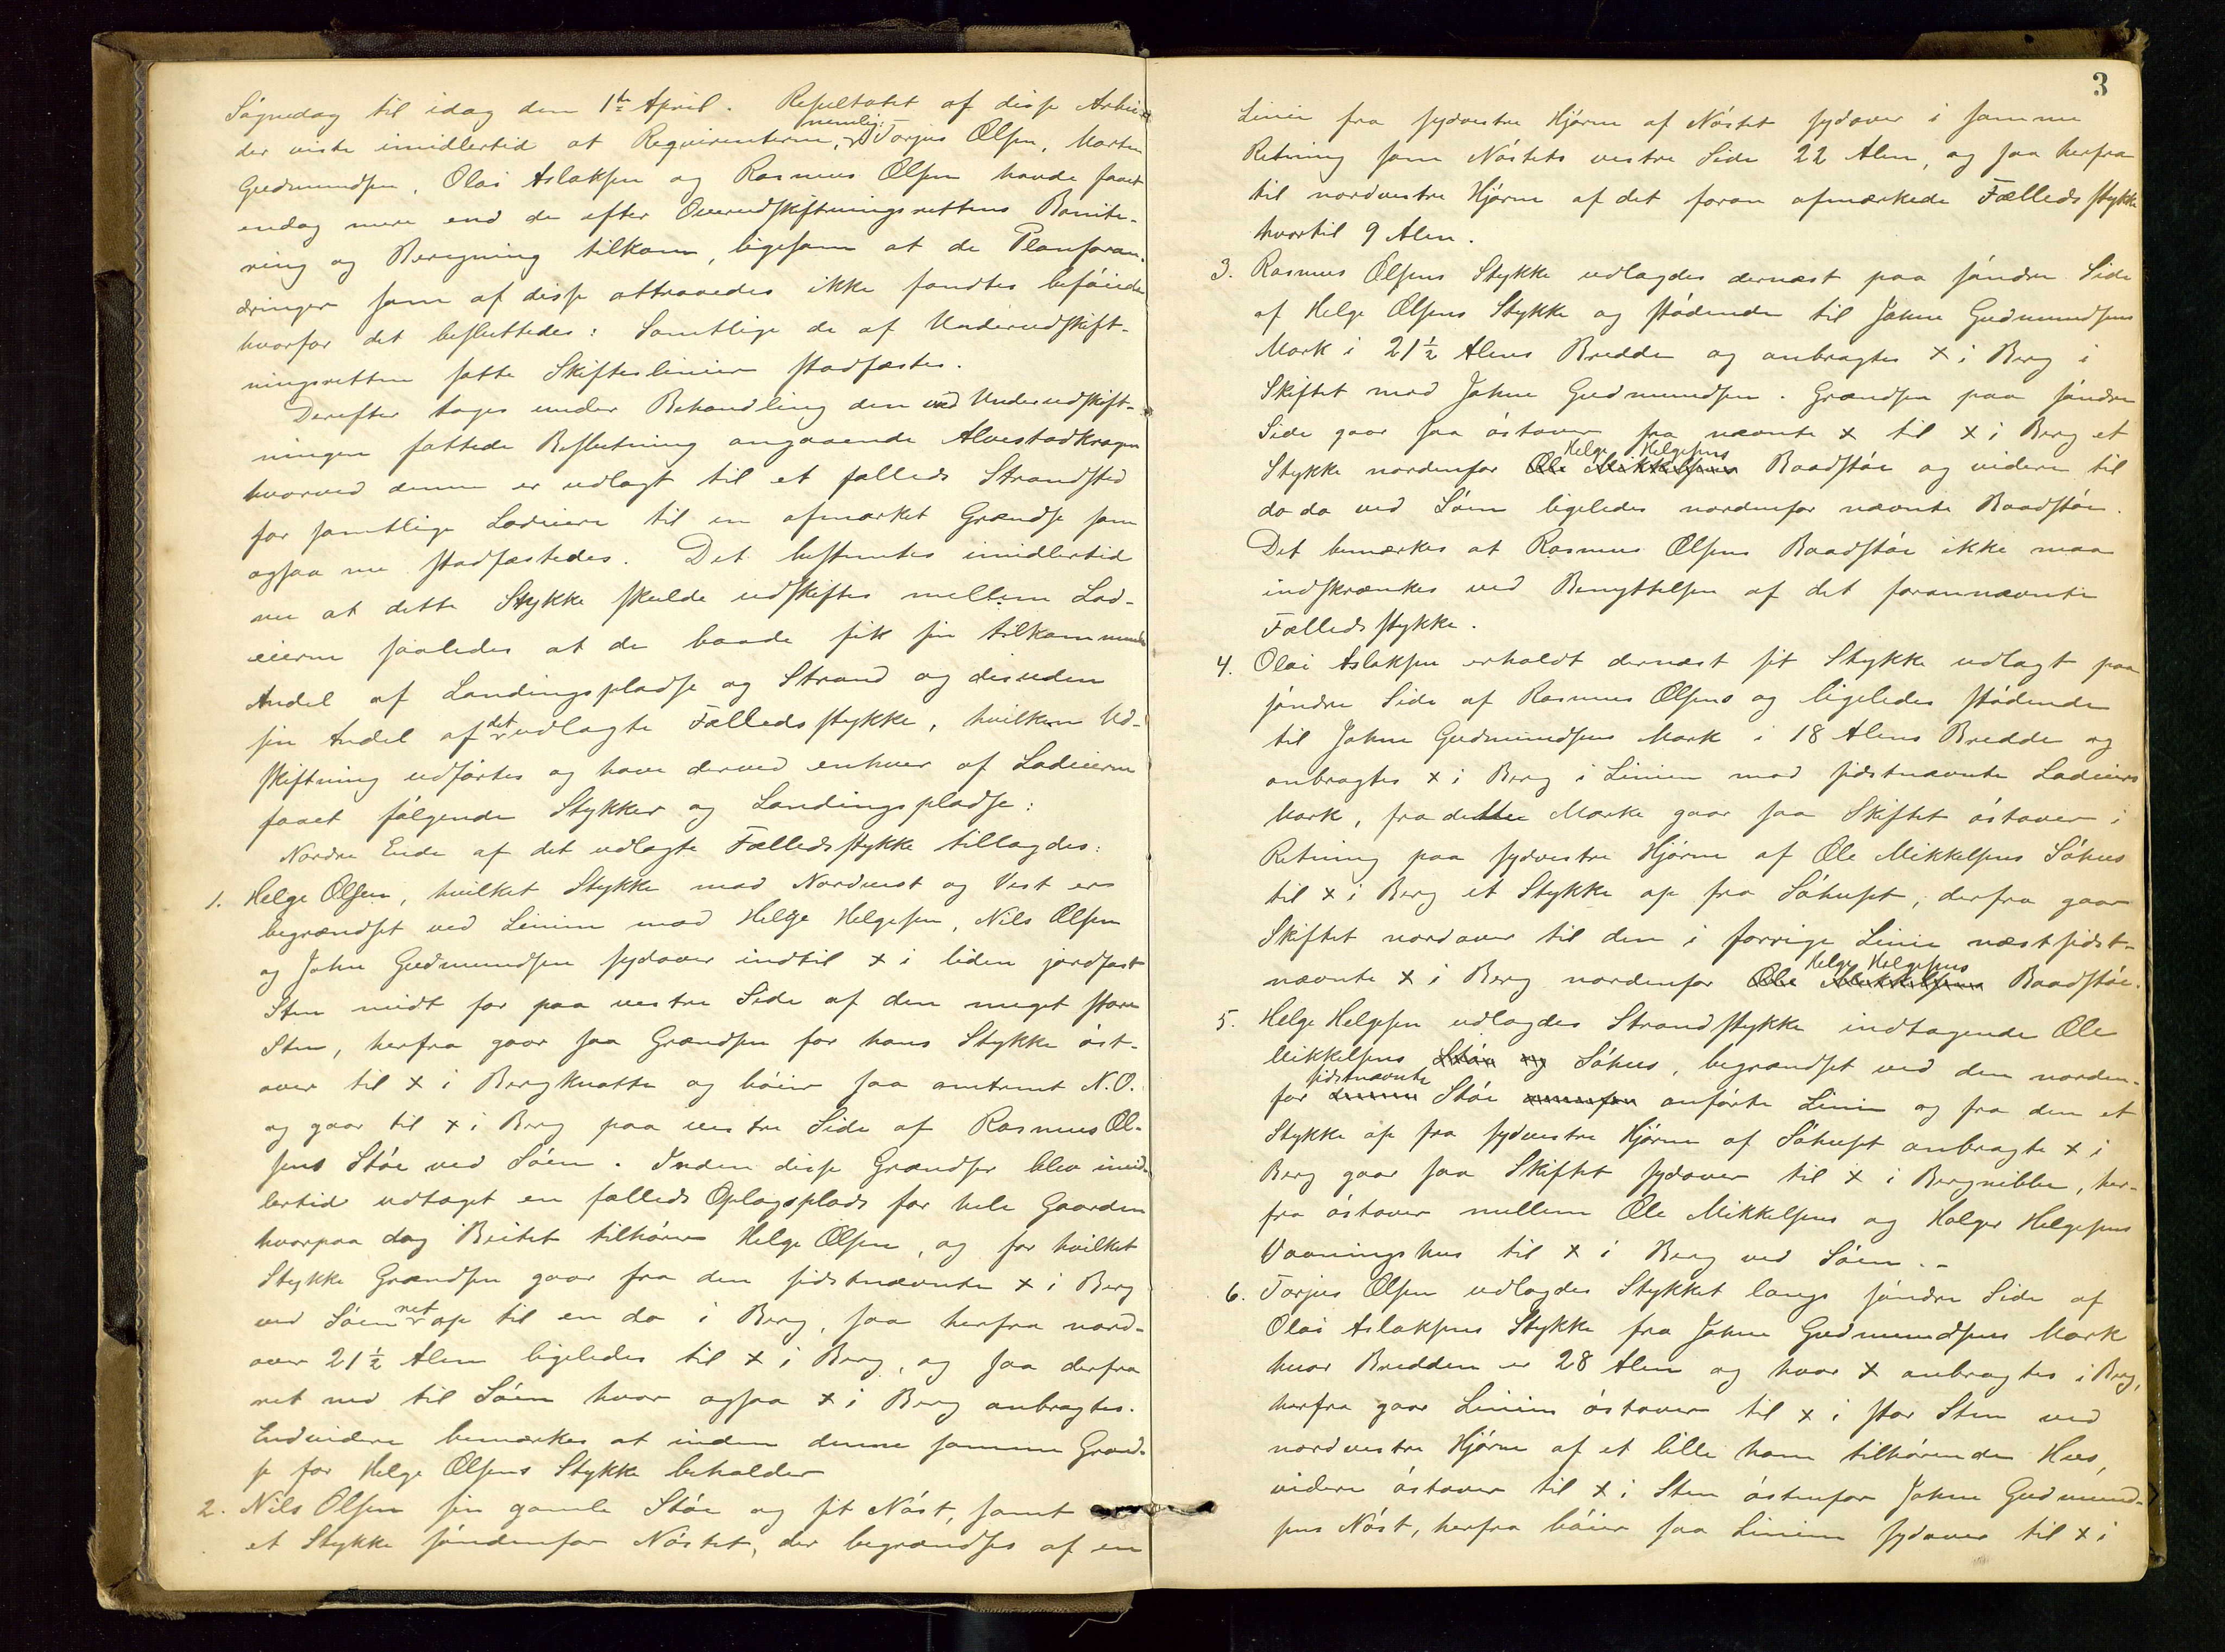 Søgnedag til idag den 1ste April. Resultatet af disse Arbei-
der viste imidlertid at Reqvirenterne, nemlig: Torjus Olsen, Morten
Gudmundsen, Olai Aslaksen og Rasmus Olsen havde faaet
endog mere end de efter Overudskiftningsrettens Bonite-
ring og Beregning tilkom, ligesom at de Planforan-
dringer som af disse attraaedes ikke fandtes beføiede
hvorfor det besluttedes: Samtlige de af Underudskift-
ningsretten satte Skifteslinier stadfæstes.
Derefter toges under Behandling den ved Underudskift-
ningen fattede Beslutning angaaende Alvestadkragen
hvorved denne er udlagt til et fælleds Strandsted
for samtlige Lodeiere til en afmærket Grændse som
ogsaa nu stadfæstedes. Det bestemtes imidlertid
nu at dette Stykke skulde udskiftes mellem Lod-
eierne saaledes at de baade fik sin tilkommende
Andel af Landingspladse og Strand og desuden
sin Andel af det udlagte Fælledsstykke, hvilken Ud-
skiftning udførtes og have derved enhver af Lodeierne
faaet følgende Stykker og Landingspladse:
Nordre Ende af det udlagte Fælledsstykke tillagdes:
1. Helge Olsen, hvilket Stykke mod Nordvest og Vest er
begrændset ved Linien mod Helge Helgesen, Nils Olsen
og John Gudmundsen sydover indtil x i liden jordfast
Sten midt for paa vestre Side af den meget store
Sten, herfra gaar saa Grændsen for hans Stykke øst-
over til x i Bergknatte og bøier saa omtrent N.O.
og gaar til x i Berg paa vestre Side af Rasmus Ol-
sens Støe ved Søen. Inden disse Grændser blev imid-
lertid udtaget en fælleds Oplagsplads for hele Gaarden
hvorpaa dog Beitet tilhører Helge Olsen, og for hvilket
Stykke Grændsen gaar fra den sidstnævnte x i Berg
ved Søen ret op til en do i Berg, saa herfra nord-
over 21½ Alen ligeledes til x i Berg, og saa derfra
ret ned til Søen hvor ogsaa x i Berg anbragtes.
Endvidere bemærkes at inden denne samme Grænd-
se for Helge Olsens Stykke beholder
2. Nils Olsen sin gamle Støe og sit Nøst, samt
et Stykke søndenfor Nøstet, der begrændses af en
3
Linie fra sydvestre Hjørne af Nøstet sydover i samme
Retning som Nøstets vestre Side 22 Alen, og saa herfra
til nordvestre Hjørne af det foran afmærkede Fælledsstykke
hvortil 9 Alen.
3. Rasmus Olsens Stykke udlagdes dernæst paa søndre Side
af Helge Olsens Stykke og stødende til Johne Gudmundsens
Mark i 21½ Alens Bredde og anbragtes x i Berg i
Skiftet mod Johne Gudmundsen. Grændsen paa søndre
Side gaar saa østover fra nævnte x til x i Berg et
Stykke nordenfor Ole Mikkelsens Helge Helgesens Baadstøe og videre til
do do ved Søen ligeledes nordenfor nævnte Baadstøe.
Det bemærkes at Rasmus Olsens Baadstøe ikke maa
indskrænkes ved Benyttelsen af det forannævnte
Fælledsstykke.
4. Olai Aslaksen erholdt dernæst sit Stykke udlagt paa
søndre Side af Rasmus Olsens og ligeledes stødende
til Johne Gudmundsens Mark i 18 Alens Bredde og
anbragtes x i Berg i Linien mod sidstnævnte Lodeiers
Mark, fra dette Mærke gaar saa Skiftet østover i
Retning paa sydvestre Hjørne af Ole Mikkelsens Søhus
til x i Berg et Stykke op fra Søhuset, derfra gaar
Skiftet nordover til den i forrige Linie næstsidst-
nævnte x i Berg nordenfor Ole Mikkelsens Helge Helgesens Baadstøe.
5. Helge Helgesen udlagdes Strandstykke indtagende Ole
Mikkelsens Støe og Søhus, begrændset ved den norden-
for denne sidstnævnte Støe anførte Linie og fra den et
Stykke op fra sydvestre Hjørne af Søhuset anbragte x i
Berg gaar saa Skiftet sydover til x i Bergnibbe, her-
fra østover mellem Ole Mikkelsens og Holger Helgesens
Vaaningshus til x i Berg ved Søen.-
6. Torjus Olsen udlagdes Stykket langs søndre Side af
Olai Aslaksens Stykke fra Johne Gudmundsens Mark
hvor Bredden er 28 Alen og hvor x anbragtes i Berg,
herfra gaar Linien østover til x i stor Sten ved
nordvestre Hjørne af et lille ham tilhørende Hus,
videre østover til x i Sten østenfor Johne Gudmund-
sens Nøst, herfra bøier saa Linien sydover til x i